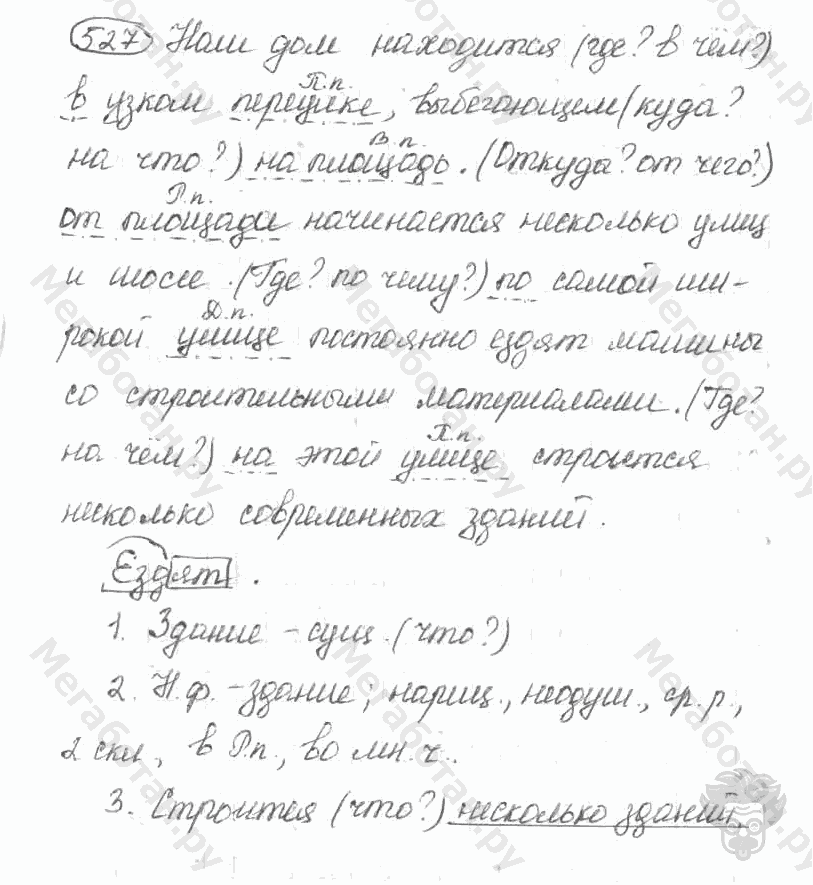 527 Наш дом находится (где? в чём?)
П.п.
в узком переулке, выбегающем (куда?
В.п.
на что?) на площадь. (Откуда? от чего?)
Р.п.
от площади начинается несколько улиц
и шоссе. (Где? по чему?) по самой ши-
Д.п.
рокой улице постоянно ездят машины
со строительными материалами. (Где?
П.п.
на чём?) на этой улице строится
несколько современных зданий.
Ездят.
1. Здание – сущ. (что?)
2. Н.ф. – здание; нариц., неодуш., ср. р.,
2 скл., в Р.п., во мн. ч..
3. Строится (что?) несколько зданий.
Мегаботан.ру